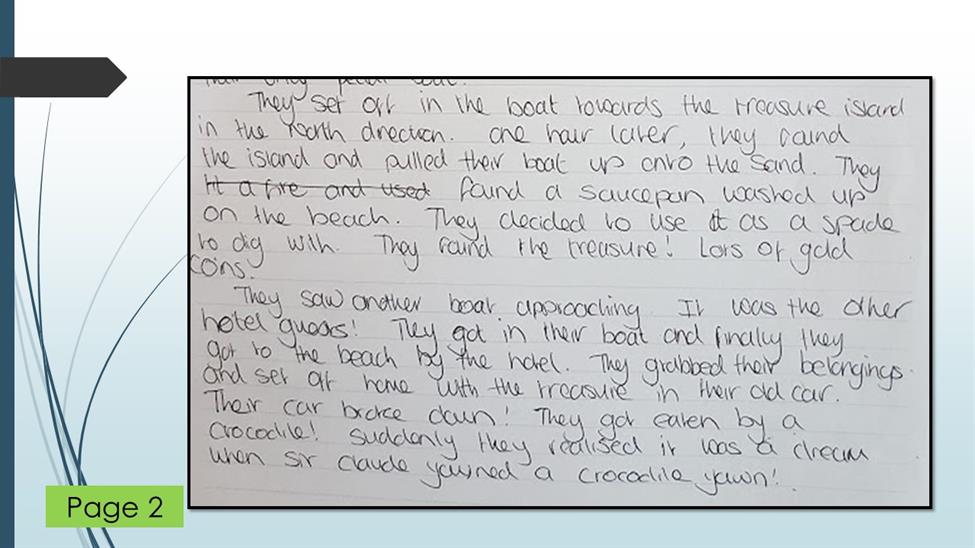 They set off in the boat towards the treasure island
in the north direction. One hour later, they found
the island and pulled their boat up onto the sand. They
lit a fire and used found a saucepan washed up
on the beach. They decided to use it as a spade
to dig with. They found the treasure! Lots of gold
coins.
They saw another boat approaching. It was the other
hotel guests! They got in their boat and finally they
got to the beach by the hotel. They grabbed their belongings
and set off home with the treasure in their old car.
Their car broke down! They got eaten by a
crocodile! Suddenly they realised it was a dream
when sir claude yawned a crocodile yawn!
Page 2